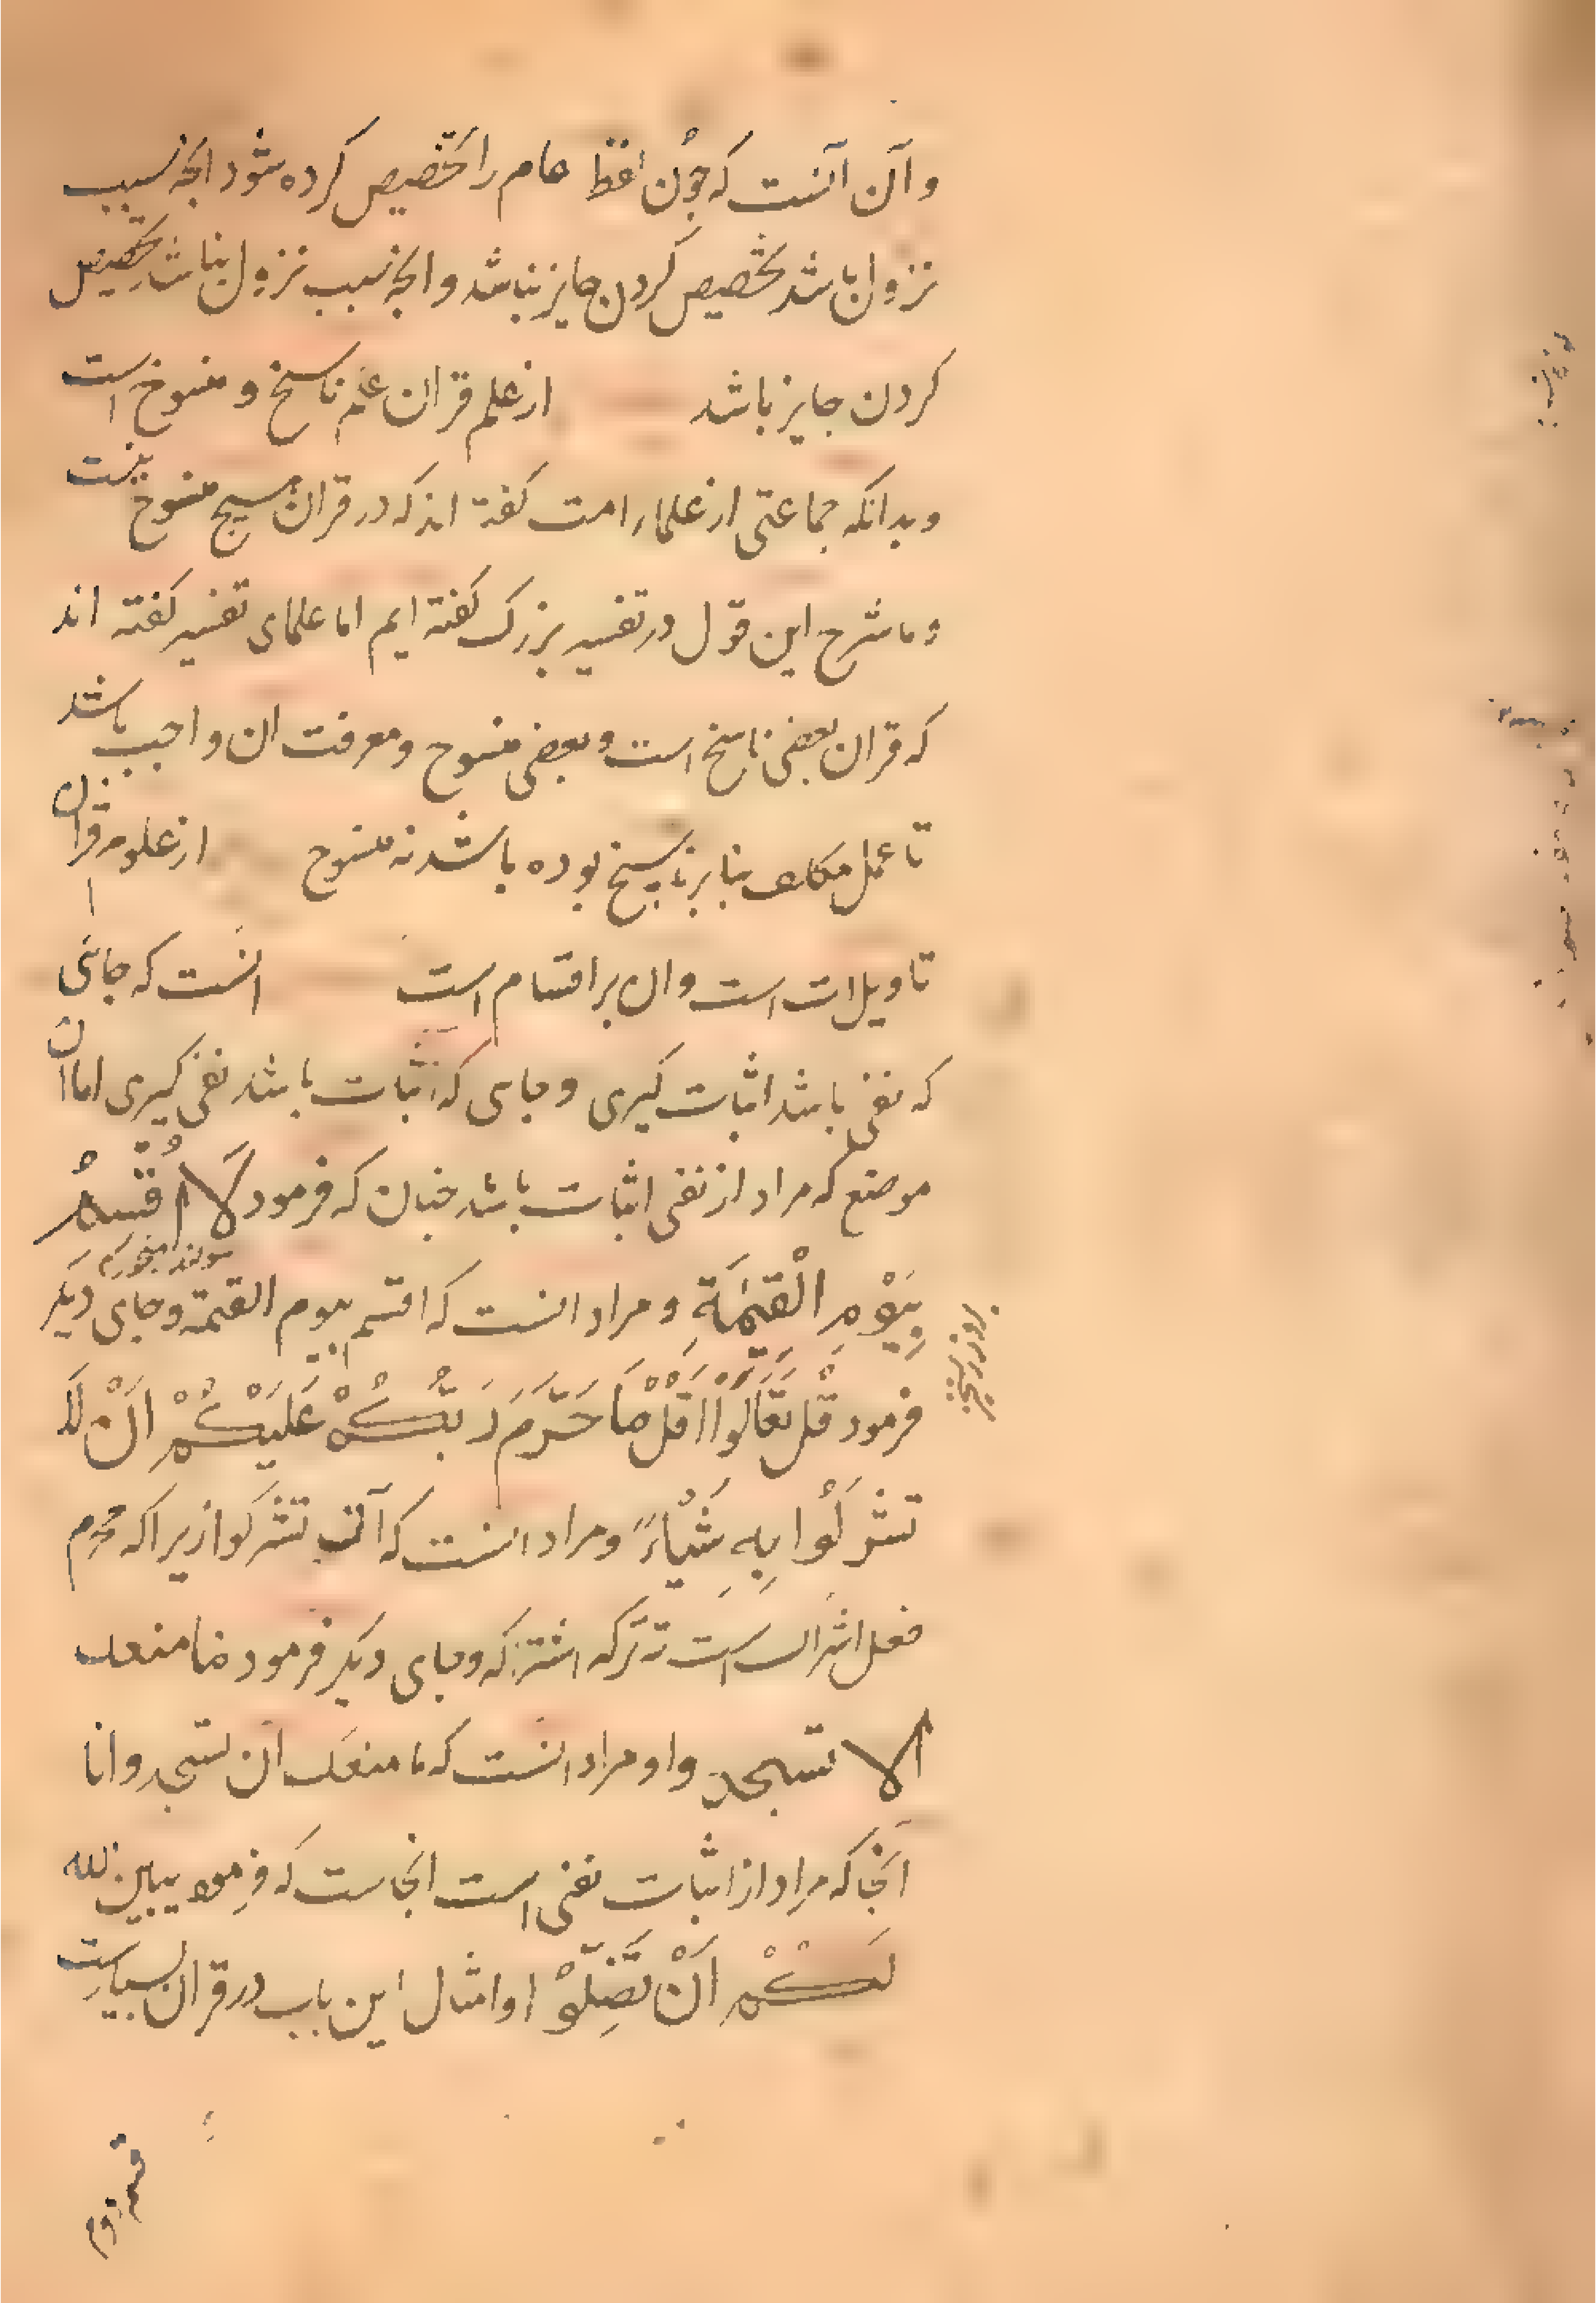 و آن آنست که چون لفظ عام را تخصیص کرده شود انچه سبب
نزول باشد تخصیص کردن جایز نباشد و انچه سبب نزول نباشد تخصیص
کردن جایز باشد از علم قران علم ناسخ و منسوخ است
و بدانکه جماعتی از علماء امت کفته اند که در قران هیچ منسوخ نیست
و ما شرح این قول در تفسیر بزرک کفته ایم اما علمای تفسیر کفته اند
که قران بعضی ناسخ است و بعضی منسوخ و معرفت ان واجب باشد
تا عمل مکلف بنا بر ناسخ بوده باشد نه منسوخ از علوم قران
تاویلات است و ان بر اقسام است انست که جائی
که نفی باشد اثبات کیری و جای که اثبات باشد نفی کیری اما ان
موضع که مراد از نفی اثبات باشد چنان که فرمود لَا اُقْسِمُ
سوکند میخورم
بِیَوْمِ الْقِیٰمَةِ و مراد انست که اقسم بیوم القیمة و جای دیکر
بروز رستخیز
فرمود قُلْ تَعَالَوْا اَتْلُ مَا حَرَّمَ رَبُّکُمْ عَلَیْکُمْ اَنْ لَا
تُشْرِکُوْا بِهِ شَیْاءً و مراد انست که ان تشرکوا زیرا که محرم
فعل اشراک است نه ترکه اشراکه و جای دیکر فرمود ما منعک
الا تسجد وا و مراد انست که ما منعک ان تسجد و اما
انجا که مراد از اثبات نفی است انجاست که فرمود یبین الله
لَکُمْ اَنْ تَضِلُّوْا و امثال این باب در قران بسیارست
قسم دوم